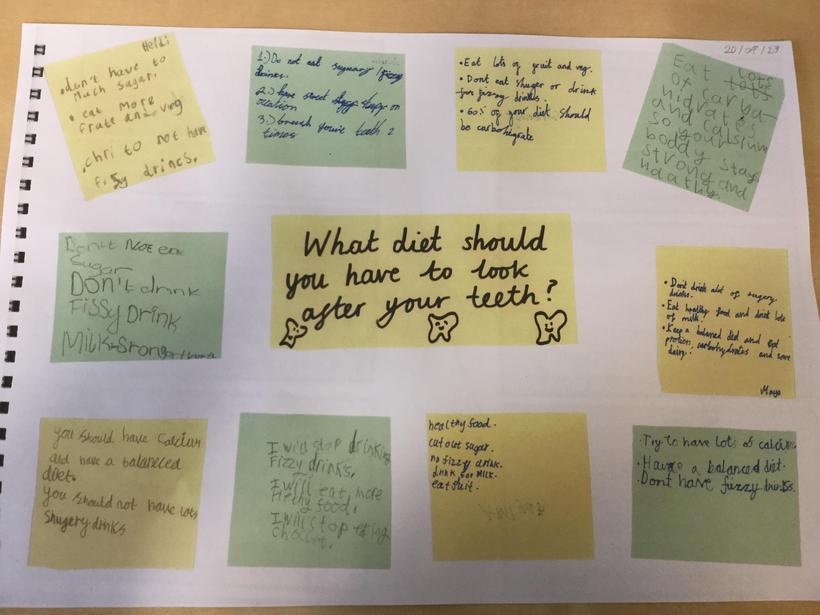 20/09/23
Heidi
•don't have to
Much sugar.
• eat more
frute and veg
.chri to not have
fi5y drincs.
1.) Do not eat suguary / fizzy
drinks.
2.) have sweet stuff on
ocation
3.) brush youre teeth 2
times
•Eat lots of fruit and veg.
•Dont eat shuger or drink
fizzy drinks.
•60% of your diet should
be carbohigrate
Eat lots
of carba-
hidrates
and calsium
so your
boddy stay
strong and
healthy.
Don't eat
Sugar
Don't drink
FissyDrink
MilK
What diet should
you have to look
after your teeth?
• Dont drink alot of sugery
drinks.
• Eat healthy food and drink lots
of milk.
• Keep a balanced died and eat
protein, carbohydrates and some
dairy.
Maya
you should have Calcium
and have a balanceced
diet.
you should not have lots
shugery drinks
I will stop drinking
Fizzy drinks,
I will eat more
Helthy food.
I will stop eting
choclet.
healthy food.
cut out sugar.
no fizzy drink.
drink for MILK.
eat fuit.
·Try to have lots of calcium.
·Have a balanced diet.
·Dont have fizzy drinks.